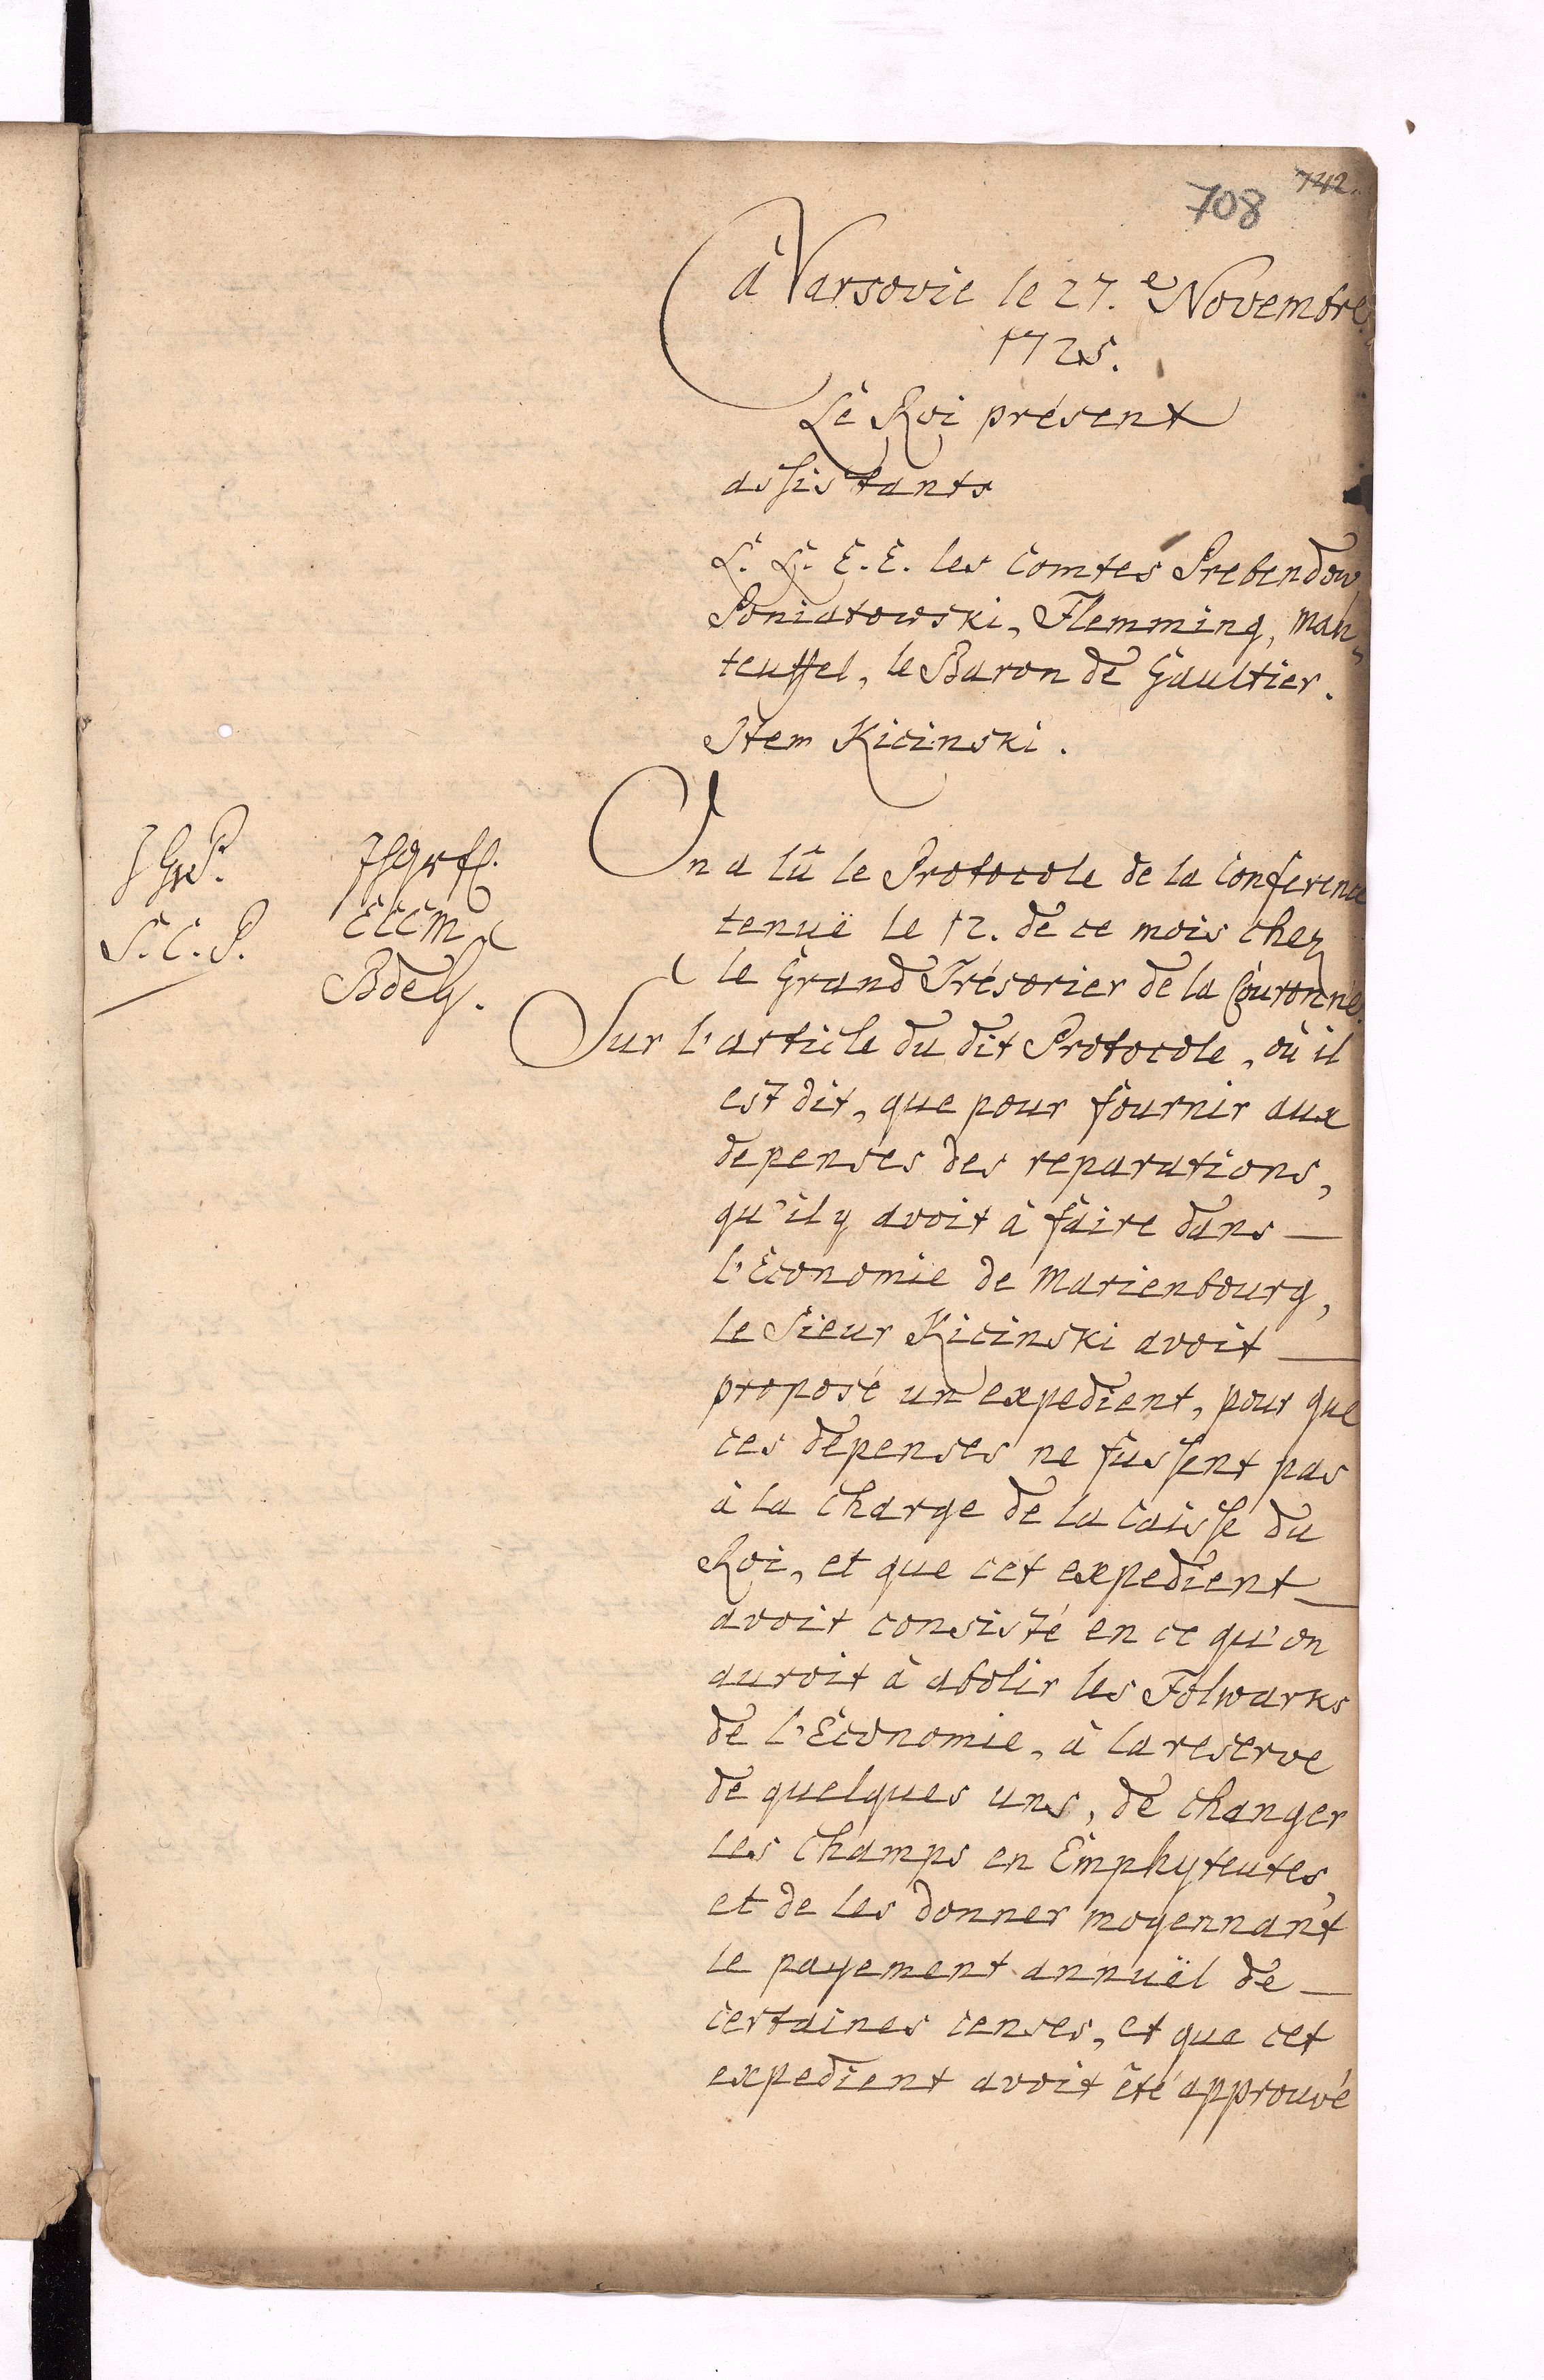 742.
708
à Varsovie le 27.e Novembre
1725.
Le Roi présent
assistants
L. L. E. E. les Comtes Prebendow,
Poniatowski, Flemming, Man,
teuffel, le Baron de Gaultier.
Item Kicinski.
On a lû le Protocole de la Conference
tenuë le 12. de ce mois chez
le Grand Trésorier de la Couronne.
S. C. P.
ECCM
BdeG.
Sur l'article du dit Protocole, où il
est dit, que pour fournir aux
depenses des reparations,
qu'il y avoit à faire dans
l'Economie de Marienbourg,
le Sieur Kicinski avoit
proposé un expedient, pour que
ces depenses ne fussent pas
à la charge de la Caisse du
Roi, et que cet expedient
avoit consisté en ce qu'on
auroit à abolir les Folwarks
de l'Economie, à la reserve
de quelques uns, de changer
les champs en Emphyteutes,
et de les donner moyennant
le payement annuël de
certaines censes, et que cet
expedient avoit été approuvé